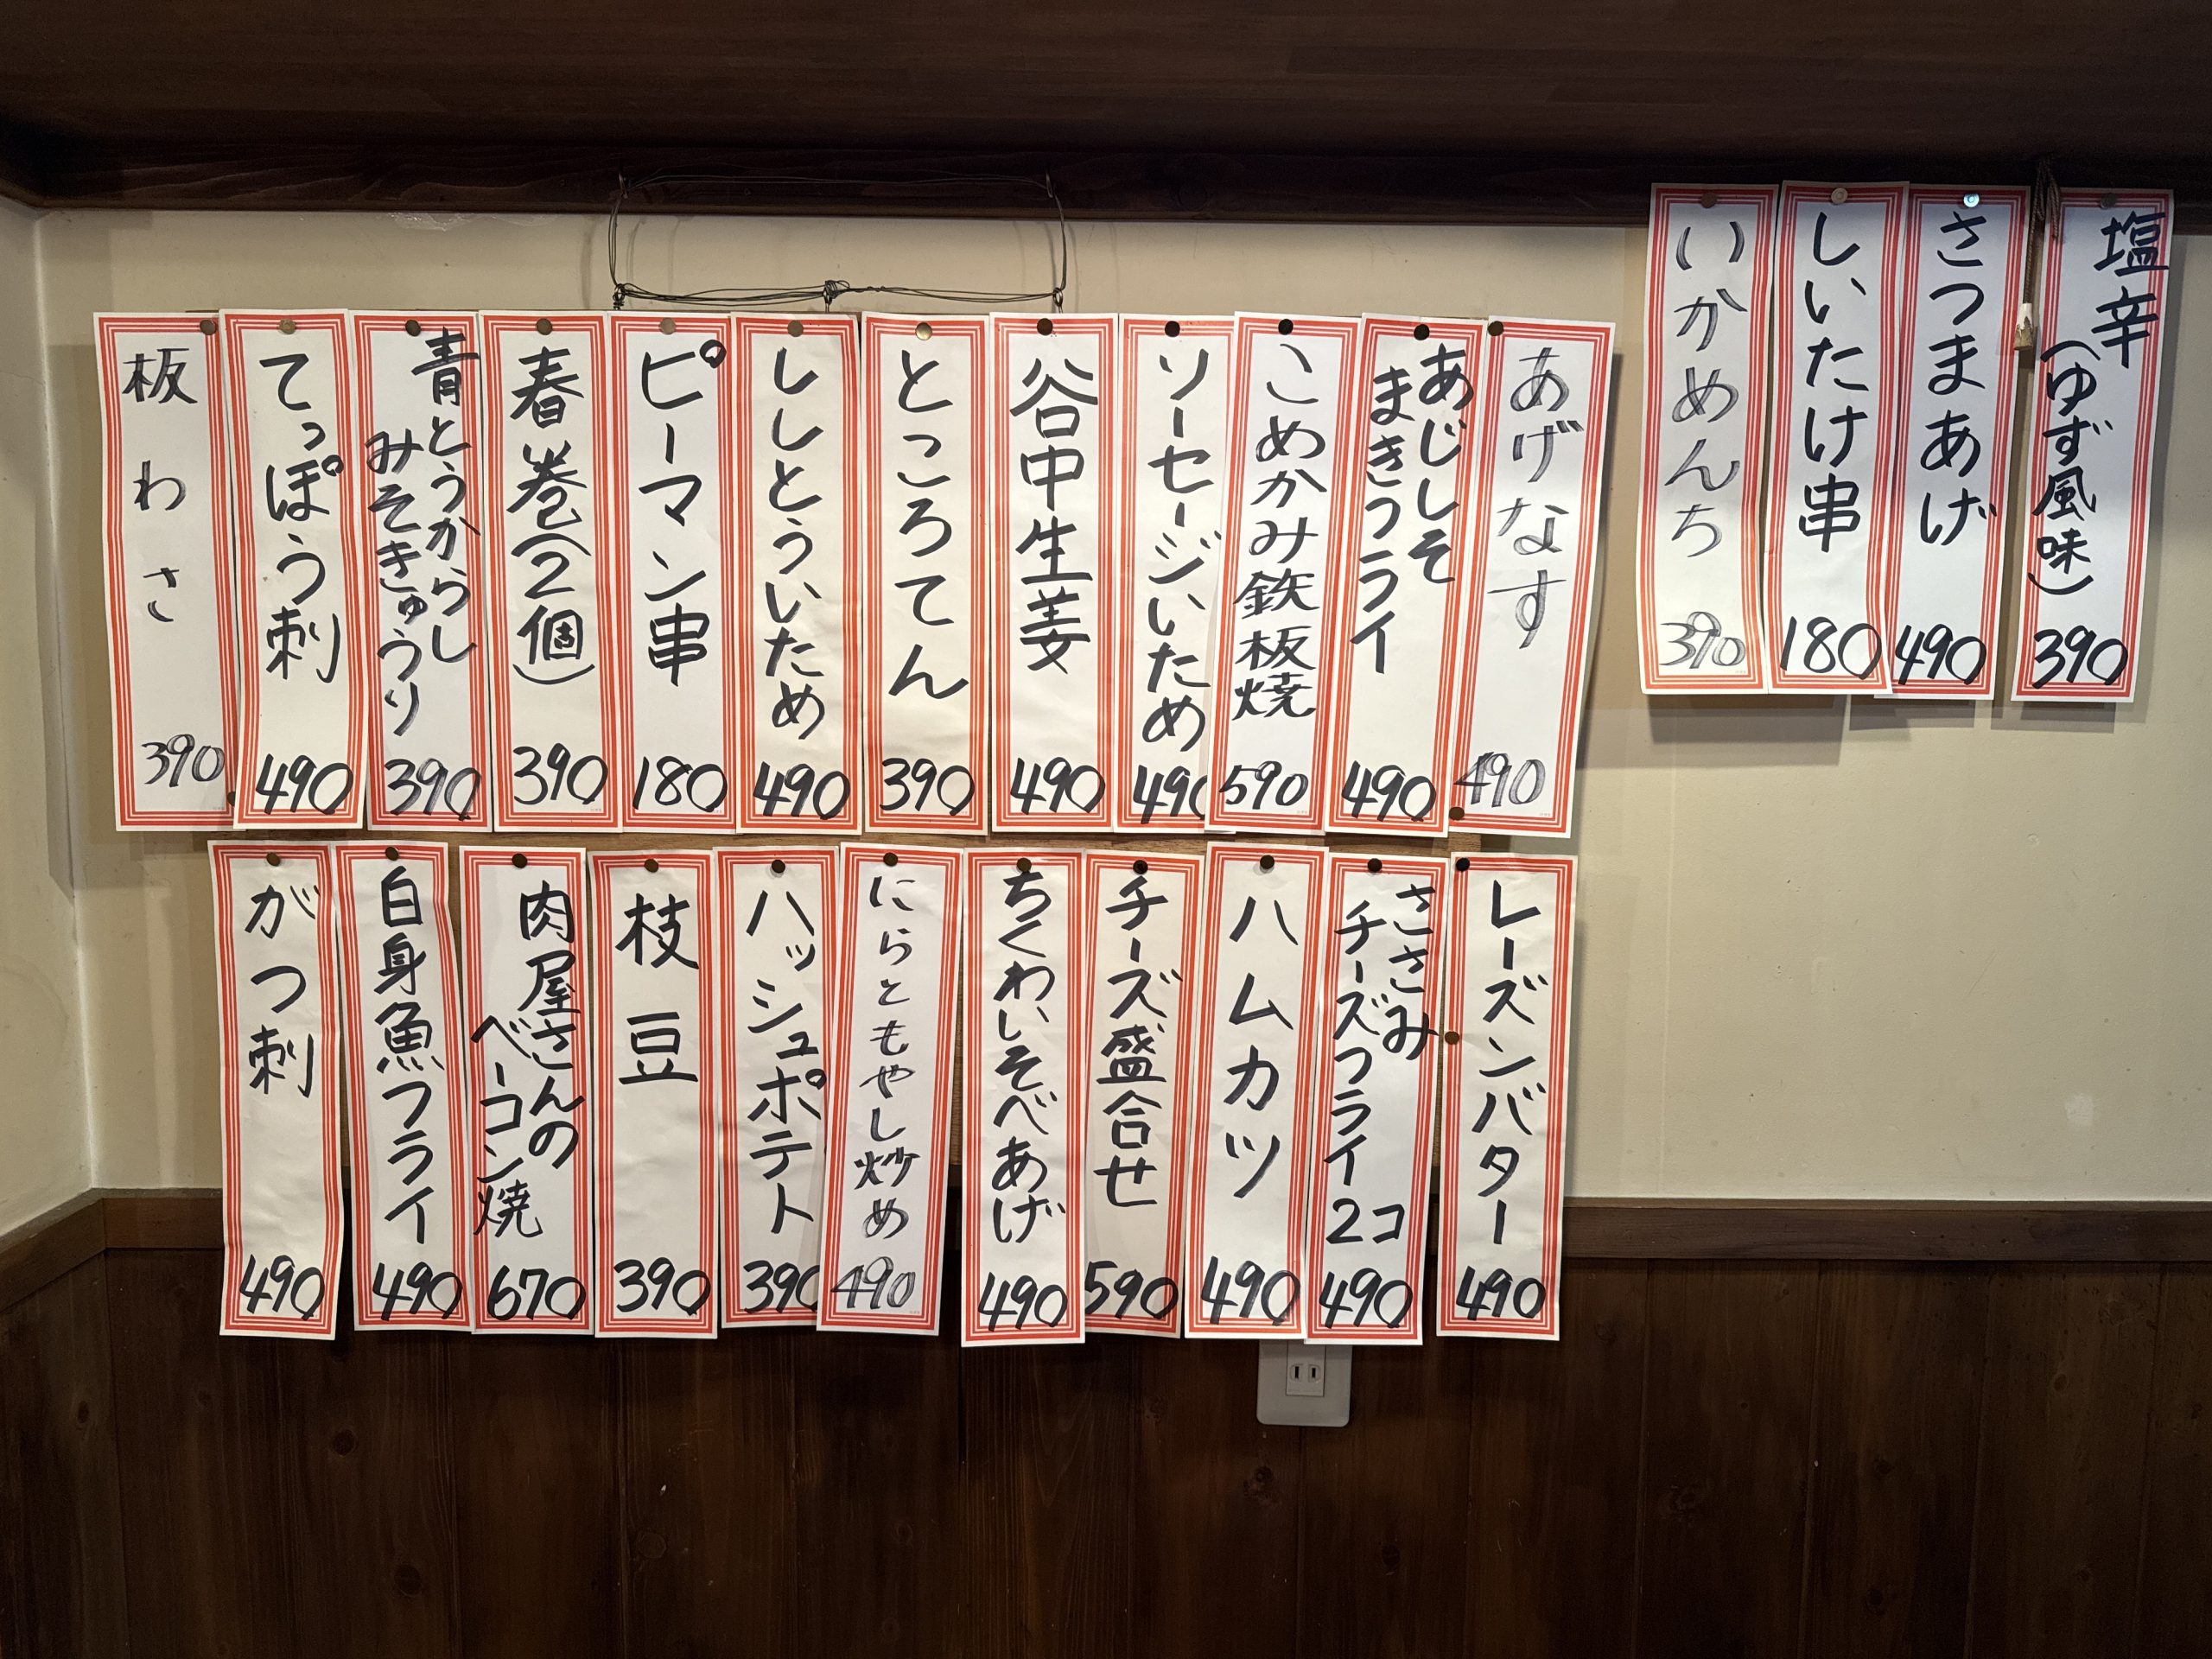 塩辛
(ゆず風味)
390
さつまあげ
490
しいたけ串
180
いかめんち
390
あげなす
490
あじしそ
まきフライ
490
こめかみ鉄板焼
590
ソーセージいため
490
谷中生姜
490
ところてん
390
ししとういため
490
ピーマン串
180
春巻(2個)
390
青とうからし
みそきゅうり
390
てっぽう刺
490
板わさ
390
レーズンバター
490
ささみ
チーズフライ2コ
490
ハムカツ
490
チーズ盛合せ
590
ちくわいそべあげ
490
にらともやし炒め
490
ハッシュポテト
390
枝豆
390
肉屋さんの
ベーコン焼
670
白身魚フライ
490
がつ刺
490